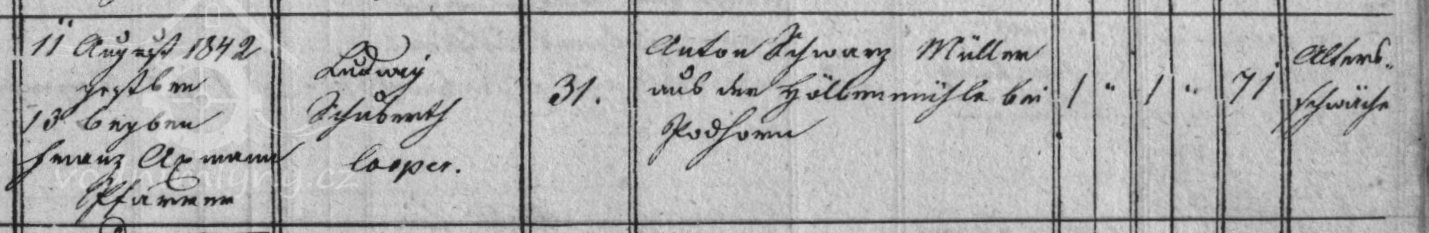 11 August 1842
gestben
13 begben
Franz Axmann
Pfarrer
Ludwig
Schuberth
Cooper.
31.
Anton Schwarz Müller
aus der Höllenmühle bei
Podhorn
1 " 1 " 71
Alters-
schwäche